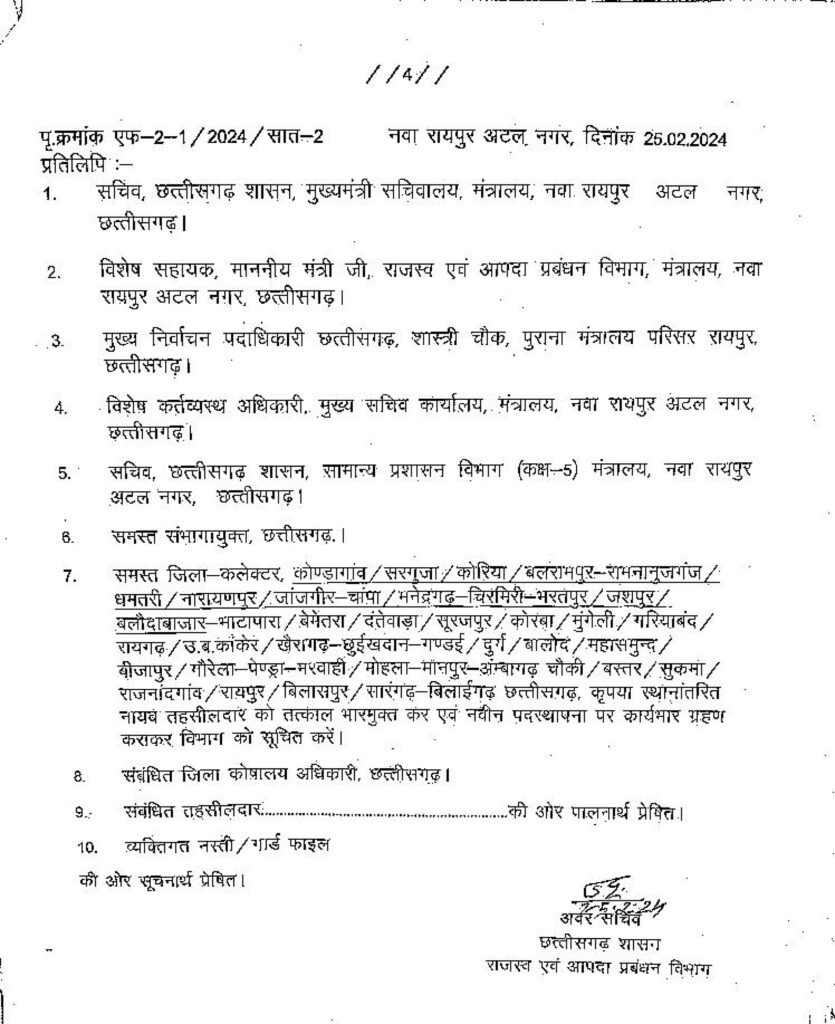 //4//
पृ.क्रमांक एफ–2–1/2024/सात–2 नवा रायपुर अटल नगर, दिनांक 25.02.2024
प्रतिलिपि :–
1. सचिव, छत्तीसगढ़ शासन, मुख्यमंत्री सचिवालय, मंत्रालय, नवा रायपुर अटल नगर,
छत्तीसगढ़।
2. विशेष सहायक, माननीय मंत्री जी, राजस्व एवं आपदा प्रबंधन विभाग, मंत्रालय, नवा
रायपुर अटल नगर, छत्तीसगढ़।
3. मुख्य निर्वाचन पदाधिकारी छत्तीसगढ़, शास्त्री चौक, पुराना मंत्रालय परिसर रायपुर,
छत्तीसगढ़।
4. विशेष कर्तव्यस्थ अधिकारी, मुख्य सचिव कार्यालय, मंत्रालय, नवा रायपुर अटल नगर,
छत्तीसगढ़।
5. सचिव, छत्तीसगढ़ शासन, सामान्य प्रशासन विभाग (कक्ष–5) मंत्रालय, नवा रायपुर
अटल नगर, छत्तीसगढ़।
6. समस्त संभागायुक्त, छत्तीसगढ़.।
7. समस्त जिला–कलेक्टर, कोण्डागांव/सरगुजा/कोरिया/बलरामपुर–रामनानुजगंज/
धमतरी/नारायणपुर/जांजगीर–चांपा/मनेद्रगढ़–चिरमिरी–भरतपुर/जशपुर/
बलौदाबाजार–भाटापारा/बेमेतरा/दंतेवाड़ा/सूरजपुर/कोरबा/मुंगेली/गरियाबंद/
रायगढ़/उ.ब.कांकेर/खैरागढ़–छुईखदान–गण्डई/दुर्ग/बालोद/महासमुन्द/
बीजापुर/गौरेला–पेण्ड्रा–मरवाही/मोहला–मानपुर–अम्बागढ़ चौकी/बस्तर/सुकमा/
राजनांदगांव/रायपुर/बिलासपुर/सारंगढ़–बिलाईगढ़ छत्तीसगढ़, कृपया स्थानांतरित
नायब तहसीलदार को तत्काल भारमुक्त कर एवं नवीन पदस्थापना पर कार्यभार ग्रहण
कराकर विभाग को सूचित करें।
8. संबंधित जिला कोषालय अधिकारी, छत्तीसगढ़।
9. संबंधित तहसीलदार......................................................की ओर पालनार्थ प्रेषित।
10. व्यक्तिगत नस्ती/गार्ड फाइल
की ओर सूचनार्थ प्रेषित।
25.2.24
अवर सचिव
छत्तीसगढ़ शासन
राजस्व एवं आपदा प्रबंधन विभाग